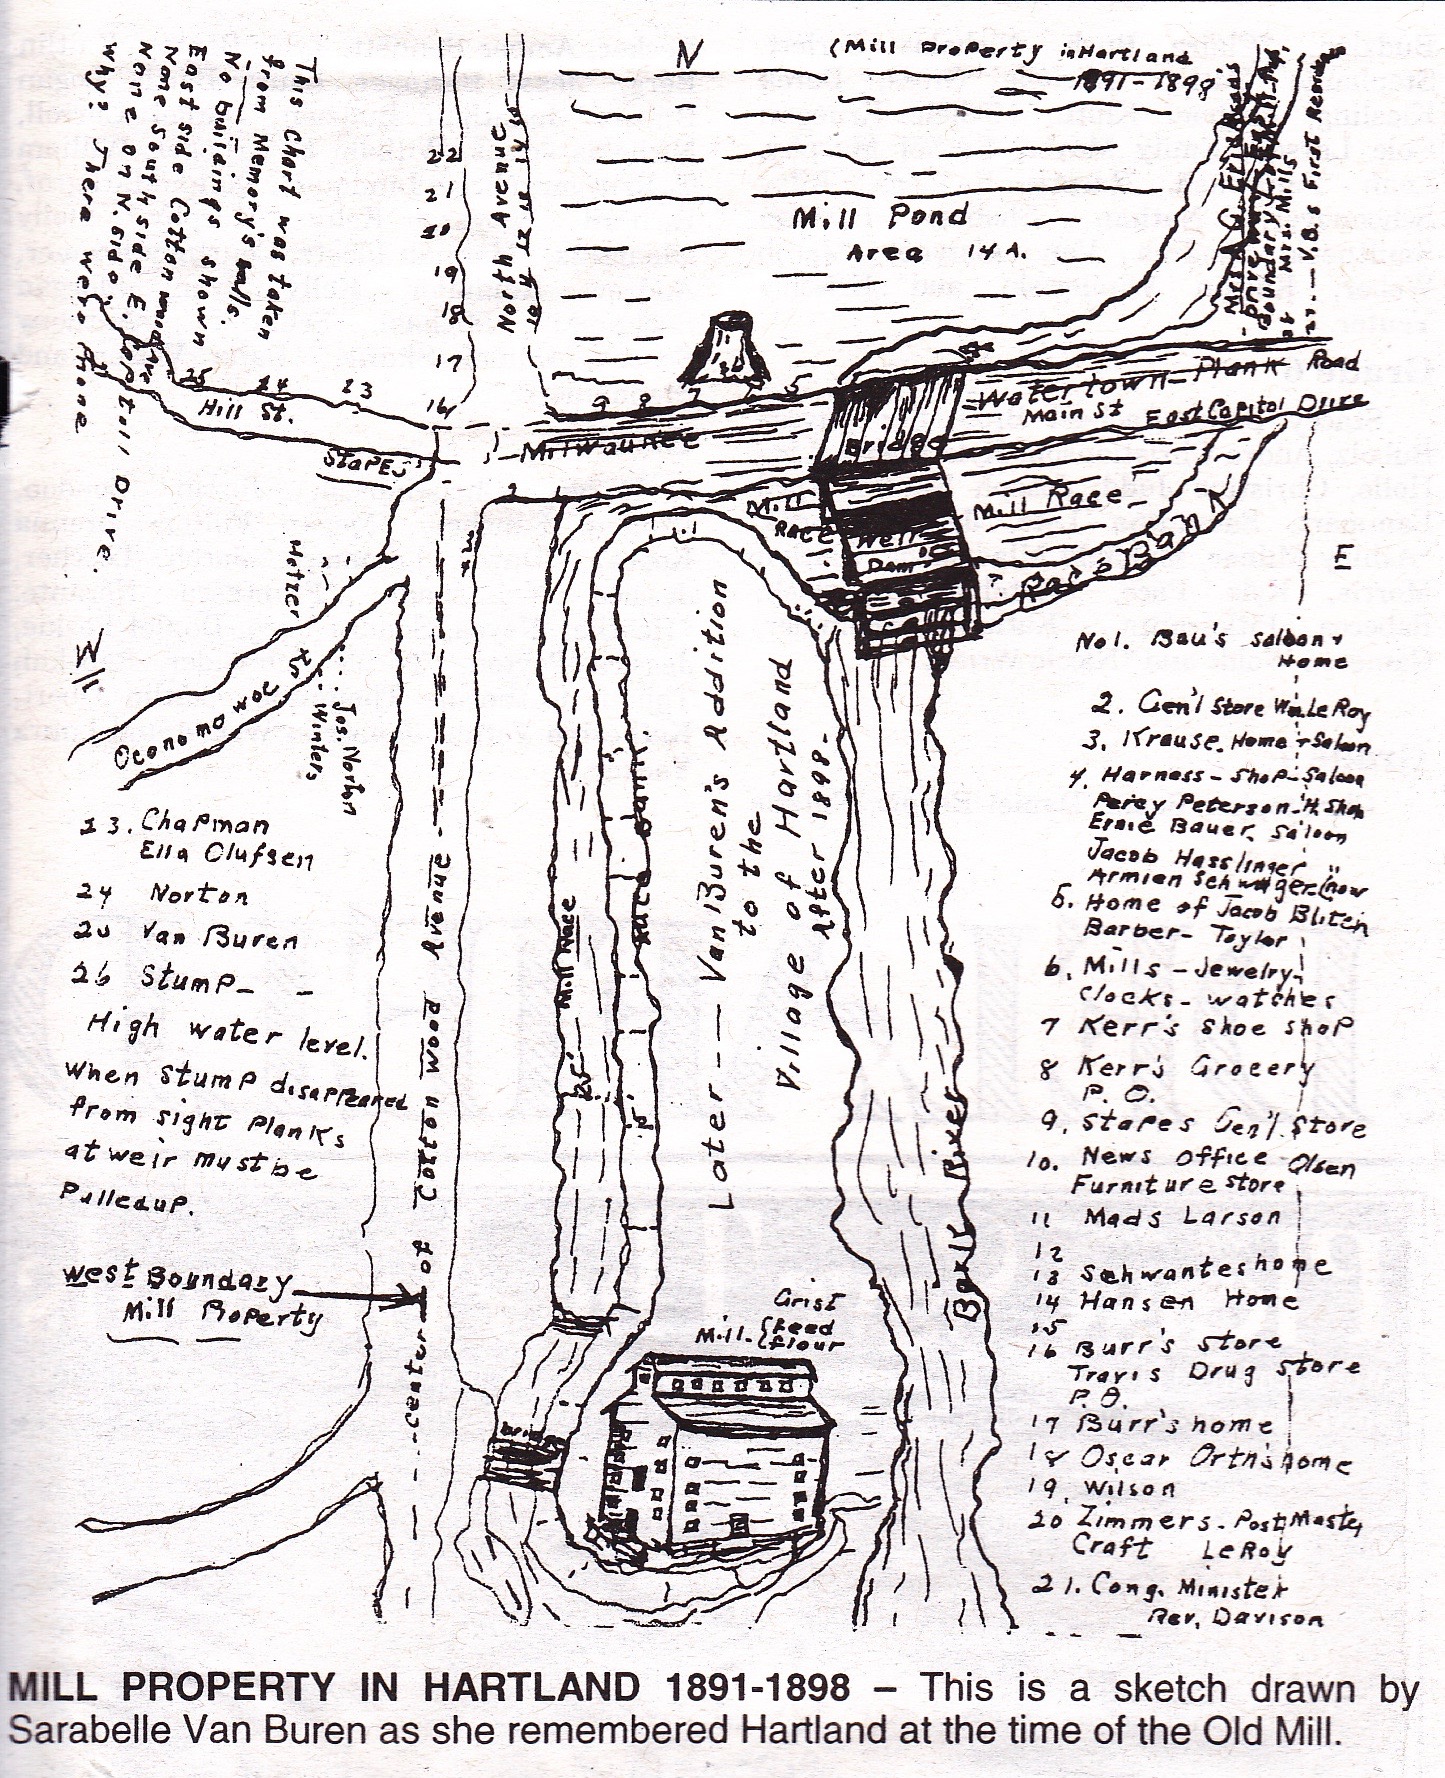 N
(Mill Property in Hartland
1891-1898
This Chart was taken
from Memory's walls.
No buildings shown
East side Cottonwood Ave
None South side E. Capitol Drive.
None on N. side.
Why? There were none
North Avenue
22
21
20
19
18
17
16
Mill Pond
Area 14 A.
Boundary
Mrs. Mills
V.B.s First Reside
25 24 23
Hill St.
9 8 7 5
Watertown Plank Road
Main St East Capitol Drive
Milwaukee
Stapes
Bridge
Mill
Race
Mill Race
Weir
Dam
Race Bank
E
Hetzer
W
Oconomowoc
to
Jos. Norton
Winters
Later -- Van Buren's Addition
to the
Village of Hartland
After 1898-
No 1. Bau's saloon +
Home
2. Gen'l Store Wm LeRoy
3. Krause. Home + Saloon
4. Harness - Shop - Saloon
Percy Peterson. H. Shop
Ernie Bauer. Saloon
Jacob Hasslinger "
Armien Schwager (now
5. Home of Jacob Bliten
Barber - Taylor
6. Mills - Jewelry -
Clocks - watches
7 Kerr's Shoe shop
8 Kerr's Grocery
P. O.
9. Stapes Gen'l. Store
10. News Office Olsen
Furniture Store
11 Mads Larson
12
13 Schwantes home
14 Hansen Home
15
16 Burr's Store
Travis Drug Store
P. O.
17 Burr's home
18 Oscar Orth's home
19. Wilson
20 Zimmers - Post Master
Craft LeRoy
21. Cong. Minister
Rev. Davison
23. Chapman
Ella Olufsen
24 Norton
25 Van Buren
26 Stump - -
High water level.
When stump disappeared
from sight Planks
at weir must be
Pulled up.
West Boundary
Mill Property
center of Cottonwood Avenue
Mill Race
Race Bank
Bark River
Grist
Mill. { Feed
Flour
Bridge
MILL PROPERTY IN HARTLAND 1891-1898 – This is a sketch drawn by
Sarabelle Van Buren as she remembered Hartland at the time of the Old Mill.